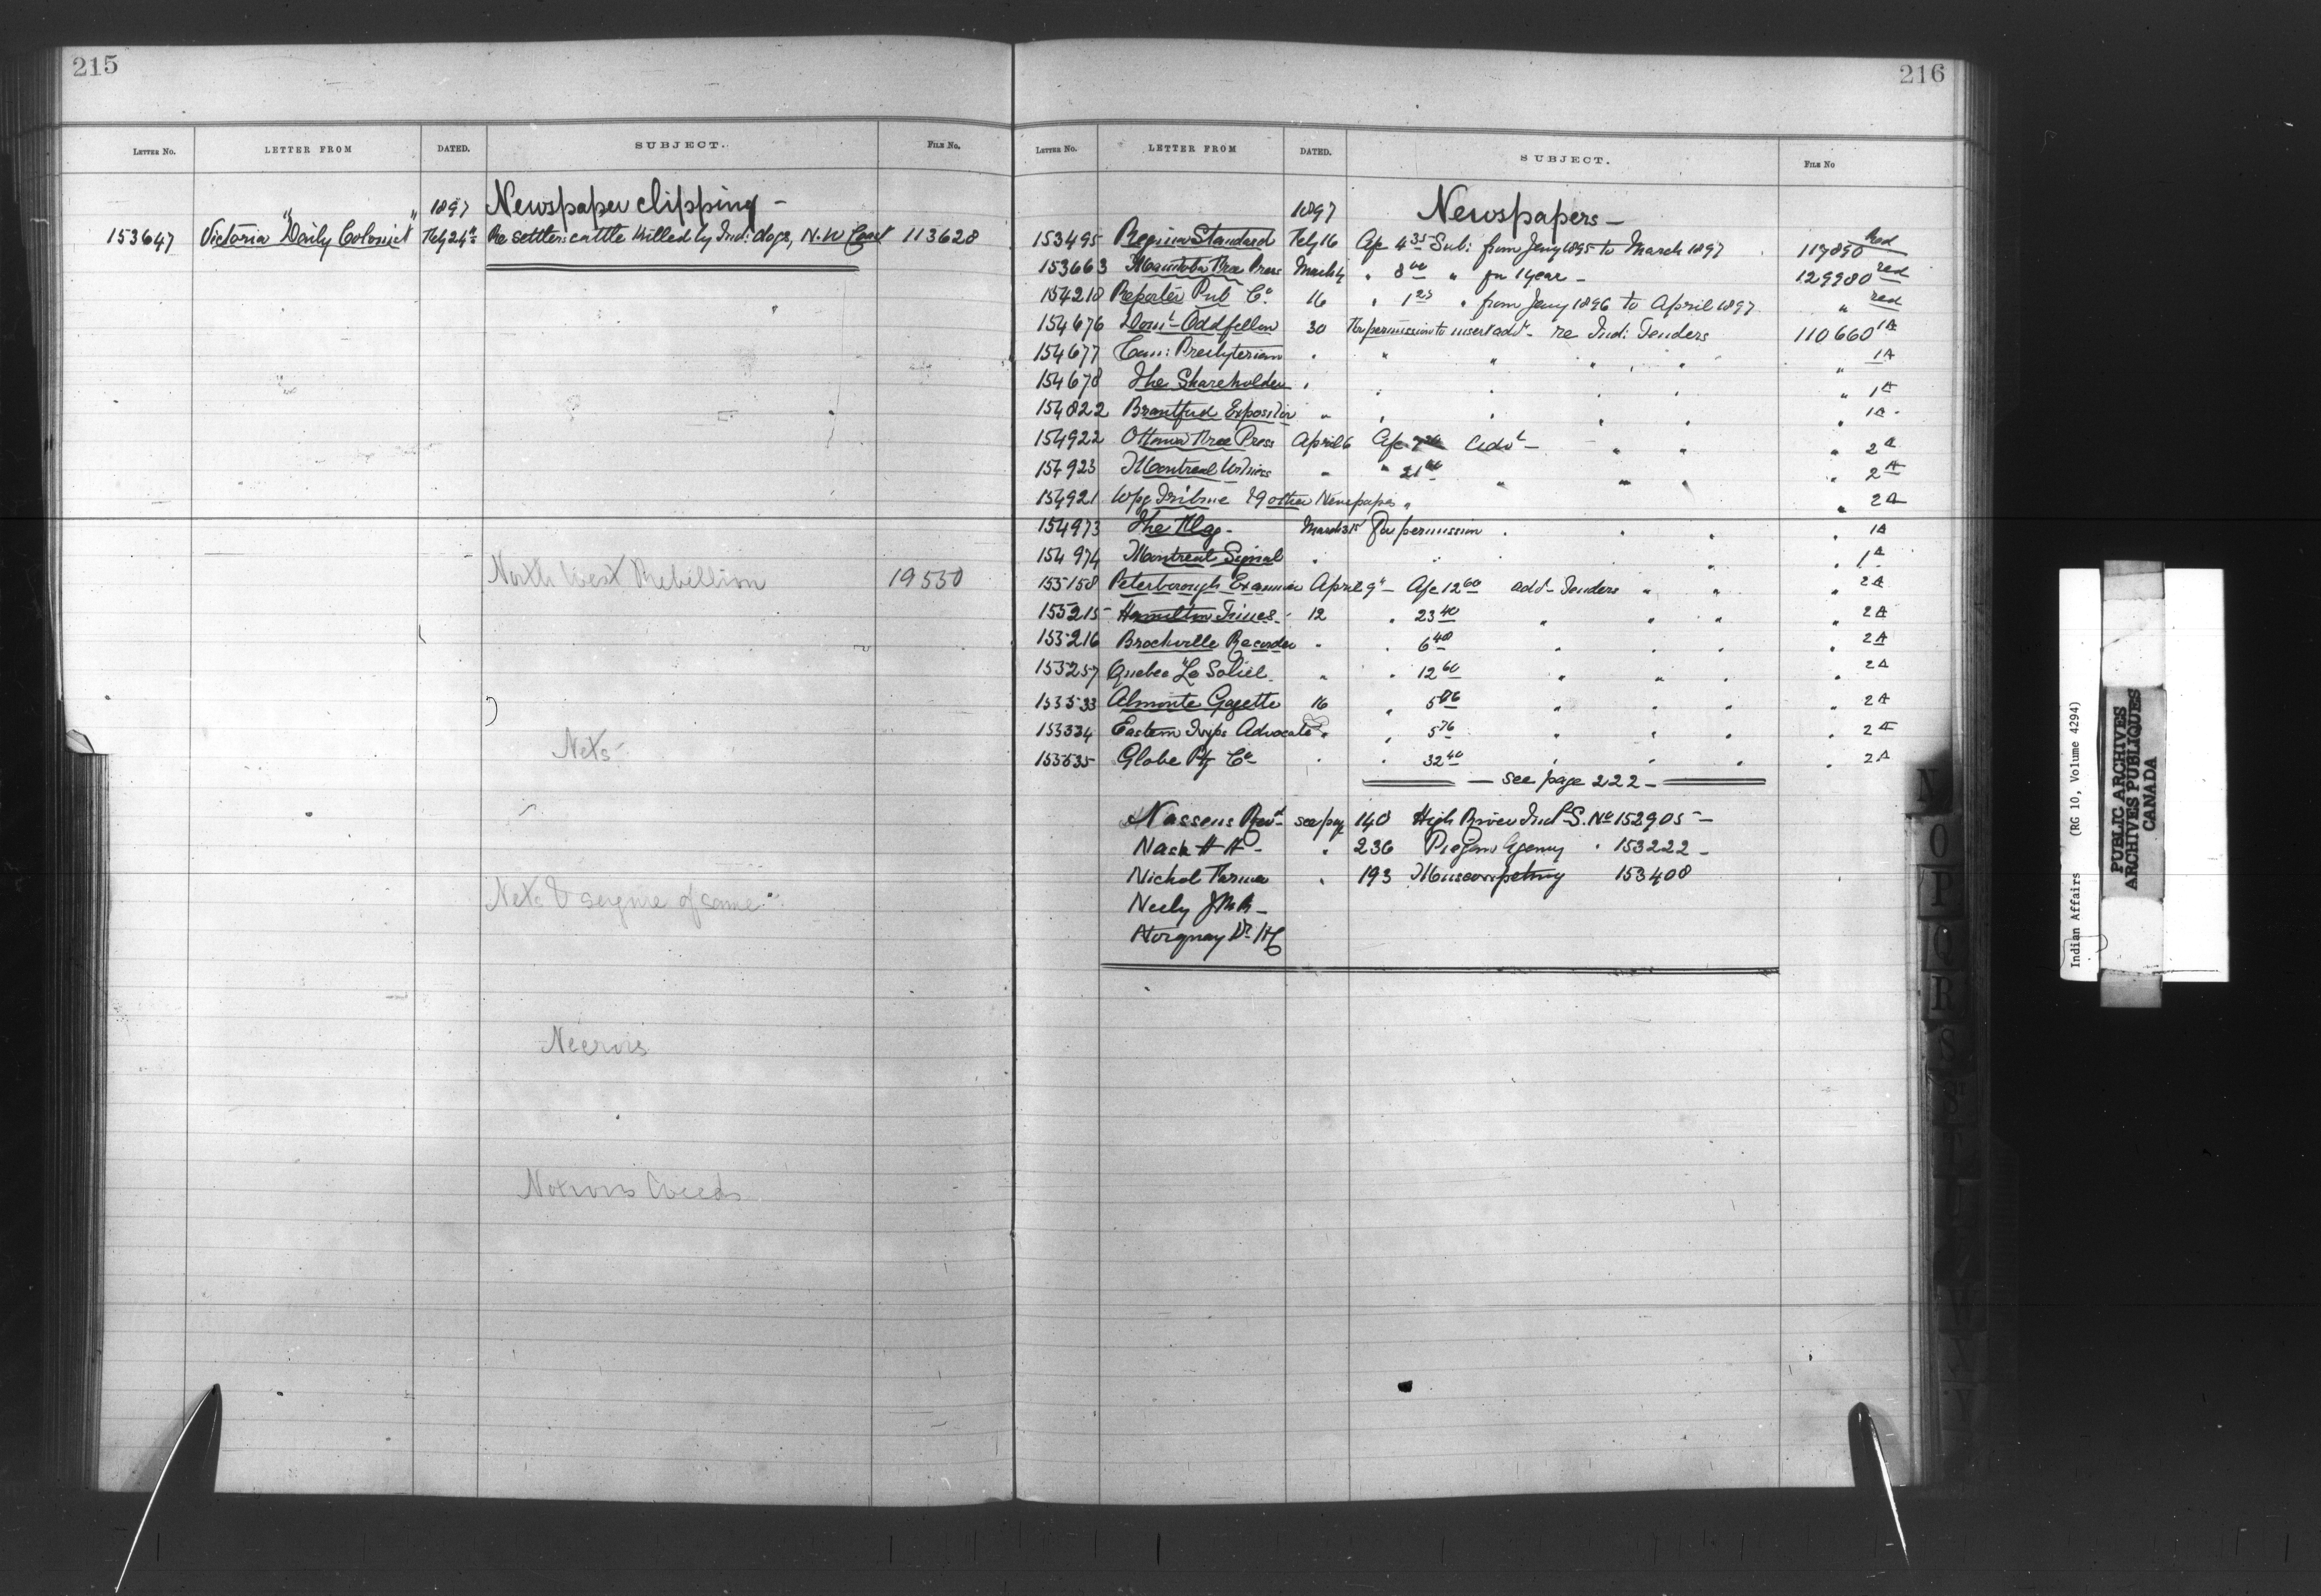 215
LETTER NO. LETTER FROM DATED. SUBJECT. FILE NO.
1897 Newspaper clipping -
153647 Victoria "Daily Colonist" Feby 24th Re settlers cattle killed by Ind: dogs, N.W Coast 113628
North West Rebellion 19550
Nets -
Nets & seizure of same
Noxious Weeds
216
LETTER NO. LETTER FROM DATED. SUBJECT. FILE NO
1897 Newspapers -
153495 Regina Standard Feby 16 A/c 4 35 Sub: from Jany 1895 to March 1897 117890 Red
153663 Manitoba Free Press March 4 " 8 00 " for 1 year - 129980 red
154218 Reporter Pub Co. 16 " 1 25 " from Jany 1896 to April 1897 " red
154676 Domn Oddfellow 30 For permission to insert advt - re Ind: Tenders 110660 1A
154677 Can: Presbyterian " " " " " " 1A
154678 The Shareholder " " " " " " 1A
154822 Brantford Expositor " " " " " " 1A
154922 Ottawa Free Press April 6 A/c Advt - " " " 2A
154923 Montreal Witness " " 21 60 " " " " 2A
154921 Wpg Tribune & 9 other Newspapers " " 2A
154973 The Flag - March 31st For permission " " " " 1A
154974 Montreal Signal " " " " " 1A
155158 Peterborough Examiner April 9th - A/c 12 60 advt - Tenders " " " 2A
155215 Hamilton Times - 12 " 23 40 " " " " 2A
155216 Brockville Recorder " " 6 48 " " " " 2A
155257 Quebec "Le Soliel. " " 12 60 " " " 2A
155533 Almonte Gazette 16 " 5 86 " " " " 2A
155534 Eastern Twps Advocate " " 5 76 " " " " 2A
155535 Globe Ptg Co - " " 32 40 " " " " 2A
- see page 222 -
Nassens Revd - see page 140 High River Indl S. No 152905 -
Nash H H - " 236 Piegan Agency " 153222 -
Nichol Thrma " 193 Muscowpetung 153408
Neely J M R -
Norquay Dr H C
N
O
P
Q
R
S
ST
T
U
W
Y
Indian Affairs (RG 10, Volume 4294)
PUBLIC ARCHIVES
ARCHIVES PUBLIQUES
CANADA